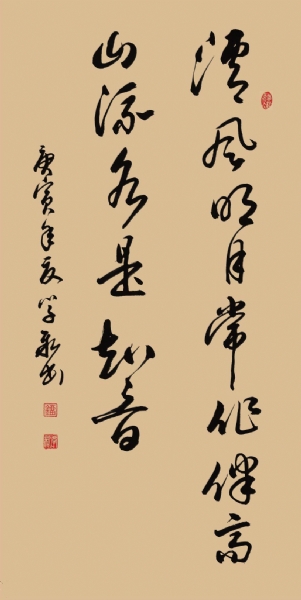 清风明月常作伴高
山流水是知音
庚寅年夏学书